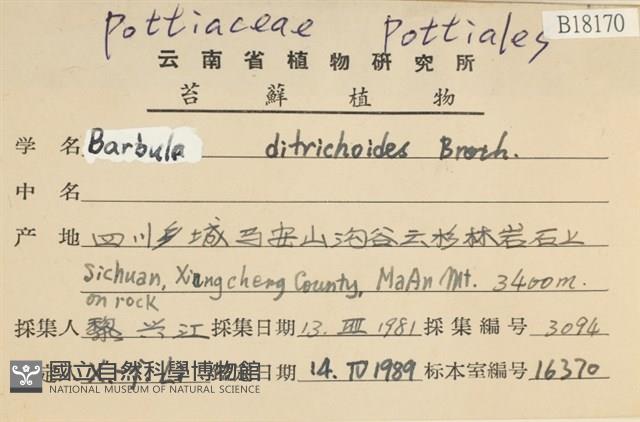 Pottiaceae Pottiales B18170
云南省植物研究所
苔蘚植物
学名 Barbula ditrichoides Broth.
中名
产地 四川乡城马安山沟谷云杉林岩石上
Sichuan, Xiangcheng County, MaAn Mt. 3400m.
on rock
採集人 黎兴江 採集日期 13. VIII 1981 採集編号 3094
日期 14. IV 1989 标本室編号 16370
國立自然科學博物館
NATIONAL MUSEUM OF NATURAL SCIENCE